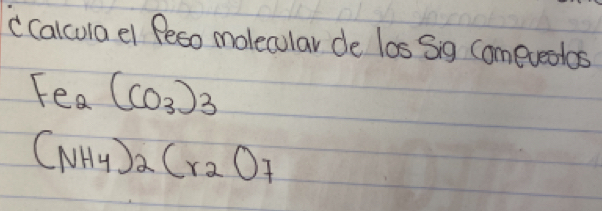 ¿Calcula el Peso molecular de los Sig Compuestos
Fe2 (CO3)3
(NH4)2 Cr2 O7